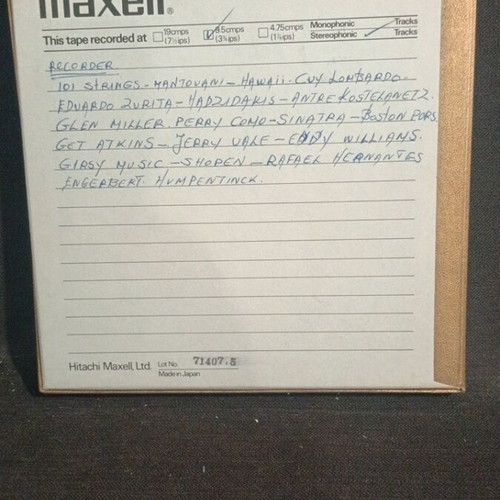 maxell®
This tape recorded at 19cmps (7½ips) 9.5cmps (3¾ips) 4.75cmps (1⅞ips) Monophonic Tracks
Stereophonic Tracks
RECORDER
101 STRINGS - MANTOVANI - HAWAII. GUY LOMBARDO -
EDUARDO ZURITA - HADZIDAKIS - ANTRE KOSTELANETZ.
GLEN MILLER. PERRY COMO - SINATRA - BOSTON POPS
GET ATKINS - JERRY VALE - EDDY WILLIAMS.
GIPSY MUSIC - SHOPEN - RAFAEL HERNANTES
ENGERBERT. HUMPENTINCK.
Hitachi Maxell, Ltd. Lot No. 71407.5
Made in Japan